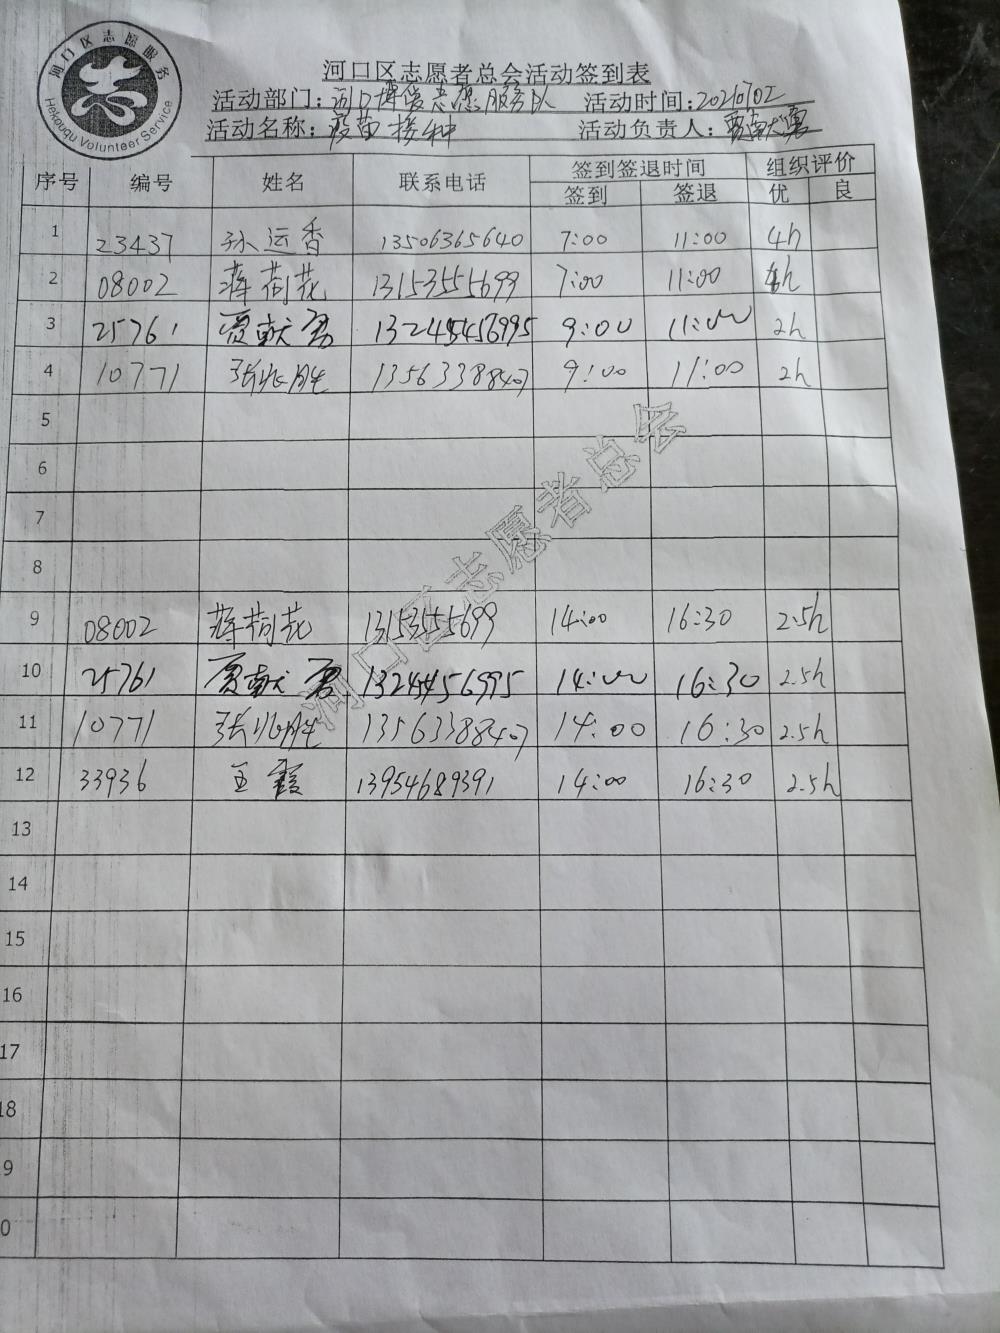 河口区志愿服务
Hekouqu Volunteer Service
河口区志愿者总会活动签到表
活动部门：河口博爱志愿服务队 活动时间：20210702
活动名称：疫苗接种 活动负责人：贾献勇
序号 编号 姓名 联系电话 签到签退时间 组织评价
签到 签退 优 良
1 23437 孙运香 13506365640 7:00 11:00 4h
2 08002 蒋荷花 13153555699 7:00 11:00 4h
3 25761 贾献勇 9:00 11:00 2h
4 10771 张兆胜 13563388407 9:00 11:00 2h
5
6
7
8
9 08002 蒋荷花 13153555699 14:00 16:30 2.5h
10 25761 贾献勇 14:00 16:30 2.5h
11 10771 张兆胜 13563388407 14:00 16:30 2.5h
12 33936 王霞 13954689391 14:00 16:30 2.5h
13
14
15
16
17
18
9
0
河口区志愿者总会